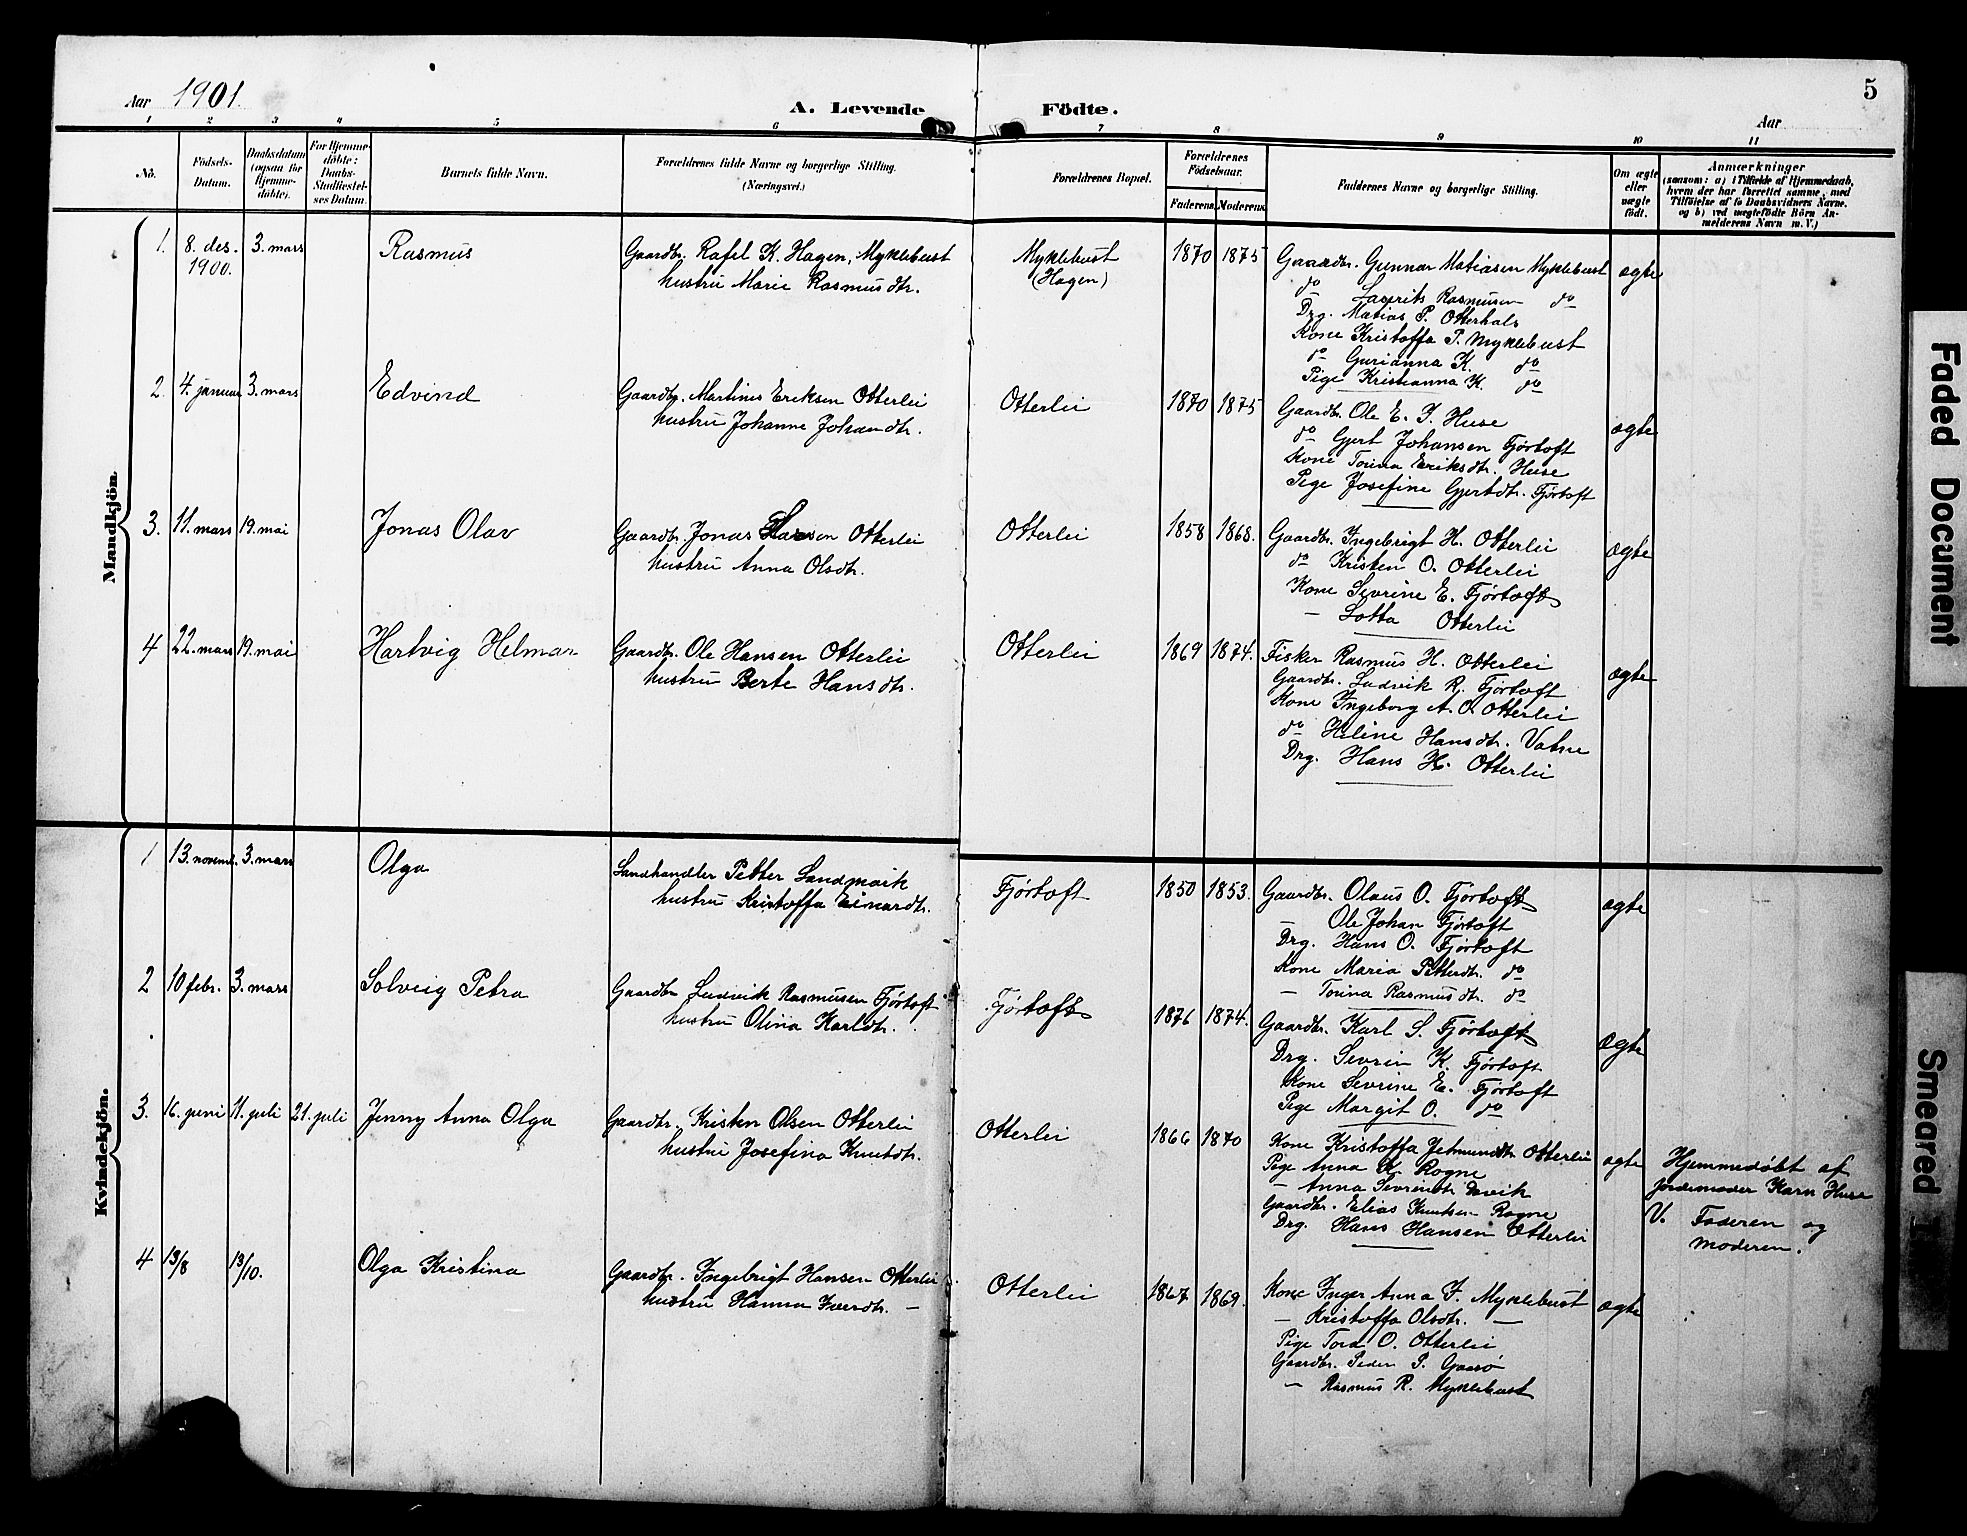 Aar 1901.
A. Levende Födte.
5
Aar
1 2 3 4 5 6 7 8 9 10 11
No.
Födsels-Datum.
Daabsdatum (ogsaa for Hjemme-döbte).
For Hjemme-döbte: Daabs-Stadfæstel-ses Datum.
Barnets fulde Navn.
Forældrenes fulde Navne og borgerlige Stilling.
(Næringsvei.)
Forældrenes Bopæl.
Forældrenes Födselsaar.
Faderens. Moderens.
Faddernes Navne og borgerlige Stilling.
Om ægte eller uægte födt.
Anmærkninger
(saasom: a) i Tilfælde af Hjemmedaab,
hvem der har forrettet samme, med
Tilföielse af to Daabsvidners Navne.
og b) ved uægtefödte Börn An-
melderens Navn m. V.)
Mandkjön.
1. 8. des. 1900. 3. mars Rasmus
Gaardbr. Rafel K. Hagen, Myklebust
hustru Marie Rasmusdtr.
Myklebust
(Hagen)
1870 1875
Gaardbr. Gunnar Matiasen Myklebust
do Lasrits Rasmusen do
Drg. Matias P. Otterhals
Kone Kristoffa P. Myklebust
do Gurianna K. do
Pige Kristianna K. do
ægte
2. 4. januar 3. mars Edvind
Gaardbr. Martinus Eriksen Otterlei
hustru Johanne Johandtr.
Otterlei
1870 1875
Gaardbr. Ole E. I. Huse
do Gjert Johansen Fjørtoft
Kone Torina Eriksdtr. Huse
Pige Josefine Gjertdtr. Fjørtoft
ægte
3. 11. mars 19. mai Jonas Olav
Gaardbr. Jonas Otterlei
hustru Anna Olsdtr.
Otterlei
1858 1868.
Gaardbr. Ingebrigt H. Otterlei
do Kristen O. Otterlei
Kone Sevrine E. Fjørtoft
— Lotta Otterlei
ægte
4 22. mars 19. mai Hartvig Helmar
Gaardbr. Ole Hansen Otterlei
hustru Berte Hansdtr.
Otterlei
1869 1874.
Fisker Rasmus H. Otterlei
Gaardbr. Ludvik R. Fjørtoft
Kone Ingeborg A. O. Otterlei
do Heline Hansdtr. Vatne
Drg. Hans H. Otterlei
ægte
Kvindekjön.
1 13. novemb. 3. mars Olga
Landhandler Petter Landmark
hustru Kristoffa Einardtr.
Fjørtoft
1850 1853.
Gaardbr. Olaus O. Fjørtoft
— Ole Johan Fjørtoft
Drg. Hans O. Fjørtoft
Kone Maria Petterdtr. do
— Torina Rasmusdtr. do
ægte
2 10 febr. 3. mars Solveig Petra
Gaardbr Ludvik Rasmusen Fjørtoft
hustru Olina Karldtr.
Fjørtoft
1876 1874.
Gaardbr. Karl S. Fjørtoft
Drg. Sevrin K. Fjørtoft
Kone Sevrine E. Fjørtoft
Pige Margit O. do
Ægte
3. 16. juni 11. juli 21. juli Jenny Anna Olga
Gaardbr. Kristen Olsen Otterlei
hustru Josefina Knutdtr.
Otterlei
1866 1870
Kone Kristoffa Jetmundtr Otterlei
Pige Anna K. Rogne
— Anna Sevrindtr
Gaardbr. Elias Knutsen Rogne
Drg. Hans Hansen Otterlei
ægte
Hjemmedøbt af
jordemoder Karn Huse
V. Faderen og
moderen.
4 13/8 13/10. Olga Kristina
Gaardbr. Ingebrigt Hansen Otterlei
hustru Hanna Iverdtr. —
Otterlei
1867 1869.
Kone Inger Anna J. Myklebust
— Kristoffa Olsdtr. —
Pige Tora O. Otterlei
Gaardbr. Peder P. Gaarø
— Rasmus R. Myklebust
ægte
Faded Document
Smeared